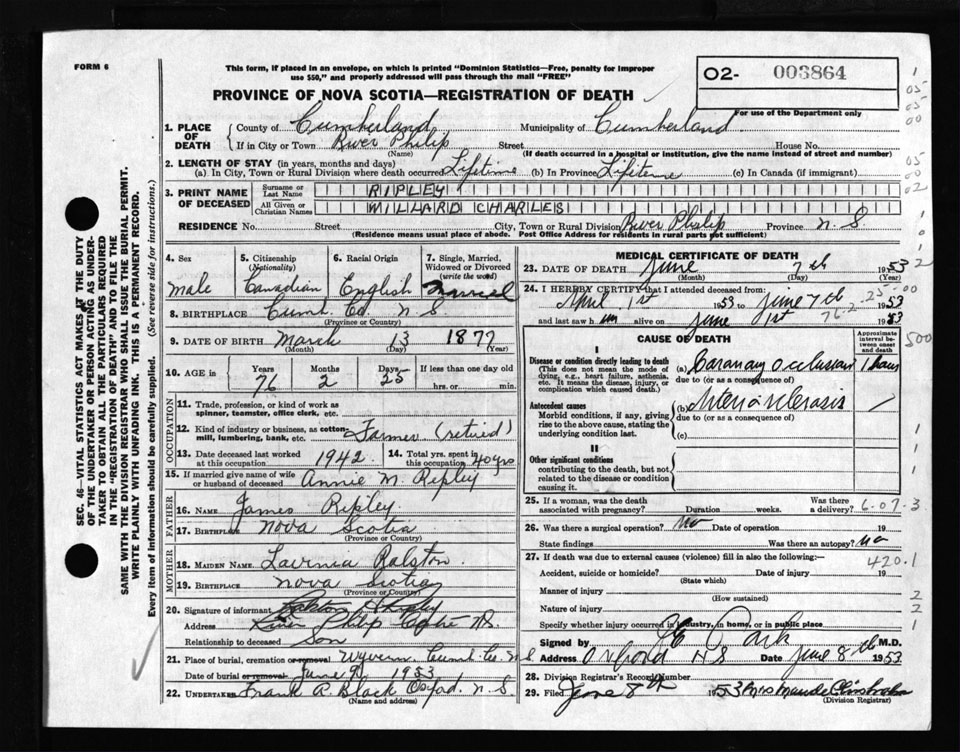 FORM 6
This form, if placed in an envelope, on which is printed "Dominion Statistics—Free, penalty for improper
use $50," and properly addressed will pass through the mail "FREE"
PROVINCE OF NOVA SCOTIA—REGISTRATION OF DEATH
O2- 003864
For use of the Department only
1. PLACE OF DEATH
County of Cumberland Municipality of Cumberland
If in City or Town River Philip Street House No.
(Name) (If death occurred in a hospital or institution, give the name instead of street and number)
2. LENGTH OF STAY (in years, months and days)
(a). In City, Town or Rural Division where death occurred Lifetime (b) In Province Lifetime (c) In Canada (if immigrant)
3. PRINT NAME OF DECEASED
Surname or Last Name RIPLEY
All Given or Christian Names MILLARD CHARLES
RESIDENCE No. Street City, Town or Rural Division River Philip Province N.S.
(Residence means usual place of abode. Post Office Address for residents in rural parts not sufficient)
4. Sex
male
5. Citizenship (Nationality)
Canadian
6. Racial Origin
English
7. Single, Married, Widowed or Divorced (write the word)
Married
8. BIRTHPLACE Cumb. Co. N.S.
(Province or Country)
9. DATE OF BIRTH March 13 1877
(Month) (Day) (Year)
10. AGE in Years Months Days If less than one day old
76 2 25 hrs. or min.
OCCUPATION
11. Trade, profession, or kind of work as
spinner, teamster, office clerk, etc.
12. Kind of industry or business, as cotton-
mill, lumbering, bank, etc. Farmer (retired)
13. Date deceased last worked
at this occupation 1942
14. Total yrs. spent in
this occupation 40 yrs
15. If married give name of wife
or husband of deceased Annie M. Ripley
FATHER
16. Name James Ripley
17. Birthplace Nova Scotia
(Province or Country)
MOTHER
18. Maiden Name Lavinia Ralston
19. Birthplace Nova Scotia
(Province or Country)
20. Signature of informant Ripley
Address River Philip N.S.
Relationship to deceased Son
21. Place of burial, cremation or removal Wyvern, Cumb. Co. N.S.
Date of burial or removal June 9 1953
22. Undertaker Frank A. Black Oxford. N.S.
(Name and address)
MEDICAL CERTIFICATE OF DEATH
23. DATE OF DEATH June 7th 1953
(Month) (Day) (Year)
24. I HEREBY CERTIFY that I attended deceased from:
April 1st 1953 to June 7th 1953
and last saw him alive on June 1st 1953
76.2 25-00
CAUSE OF DEATH
Approximate interval between onset and death
I
Disease or condition directly leading to death
(This does not mean the mode of
dying, e.g., heart failure, asthenia,
etc. It means the disease, injury, or
complication which caused death.)
(a) Coronary Occlusion
due to (or as a consequence of)
Antecedent causes
Morbid conditions, if any, giving
rise to the above cause, stating the
underlying condition last.
(b) Arteriosclerosis
due to (or as a consequence of)
(c)
II
Other significant conditions
contributing to the death, but not
related to the disease or condition
causing it.
25. If a woman, was the death
associated with pregnancy? Duration weeks. Was there a delivery?
6-07-3
26. Was there a surgical operation? No Date of operation 19
State findings Was there an autopsy? No
27. If death was due to external causes (violence) fill in also the following:—
420.1
Accident, suicide or homicide? Date of injury 19
(State which)
Manner of injury
(How sustained)
Nature of injury
Specify whether injury occurred in industry, in home, or in public place
Signed by M.D.
Address Oxford NS Date June 8th 1953
28. Division Registrar's Record Number
29. Filed June 8th 1953 Mrs Maude
(Division Registrar)
SEC. 46—VITAL STATISTICS ACT MAKES IT THE DUTY
OF THE UNDERTAKER OR PERSON ACTING AS UNDER-
TAKER TO OBTAIN ALL THE PARTICULARS REQUIRED
IN THE "REGISTRATION OF DEATH" AND TO FILE THE
SAME WITH THE DIVISION REGISTRAR WHO SHALL ISSUE THE BURIAL PERMIT.
WRITE PLAINLY WITH UNFADING INK. THIS IS A PERMANENT RECORD.
Every item of information should be carefully supplied. (See reverse side for instructions.)